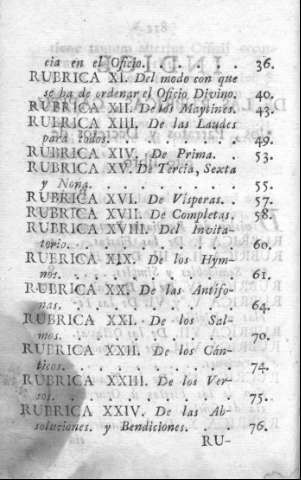 218
cia en el Oficio. . . . . . 36.
RUBRICA XI. Del modo con que
se ha de ordenar el Oficio Divino. 40.
RUBRICA XII. De los Maytines. 43.
RUBRICA XIII. De las Laudes
para todos. . . . . . . . 49.
RUBRICA XIV. De Prima. . . 53.
RUBRICA XV. De Tercia, Sexta
y Nona. . . . . . . . . 55.
RUBRICA XVI. De Visperas. . . 57.
RUBRICA XVII. De Completas. 58.
RUBRICA XVIII. Del Invita-
torio. . . . . . . . . . 60.
RUBRICA XIX. De los Hym-
nos. . . . . . . . . . 61.
RUBRICA XX. De las Antifo-
nas. . . . . . . . . . 64.
RUBRICA XXI. De los Sal-
mos. . . . . . . . . . 70.
RUBRICA XXII. De los Cán-
ticos. . . . . . . . . . 74.
RUBRICA XXIII. De los Ver-
sos. . . . . . . . . . 75.
RUBRICA XXIV. De las Ab-
soluciones. y Bendiciones. . . . 76.
RU-